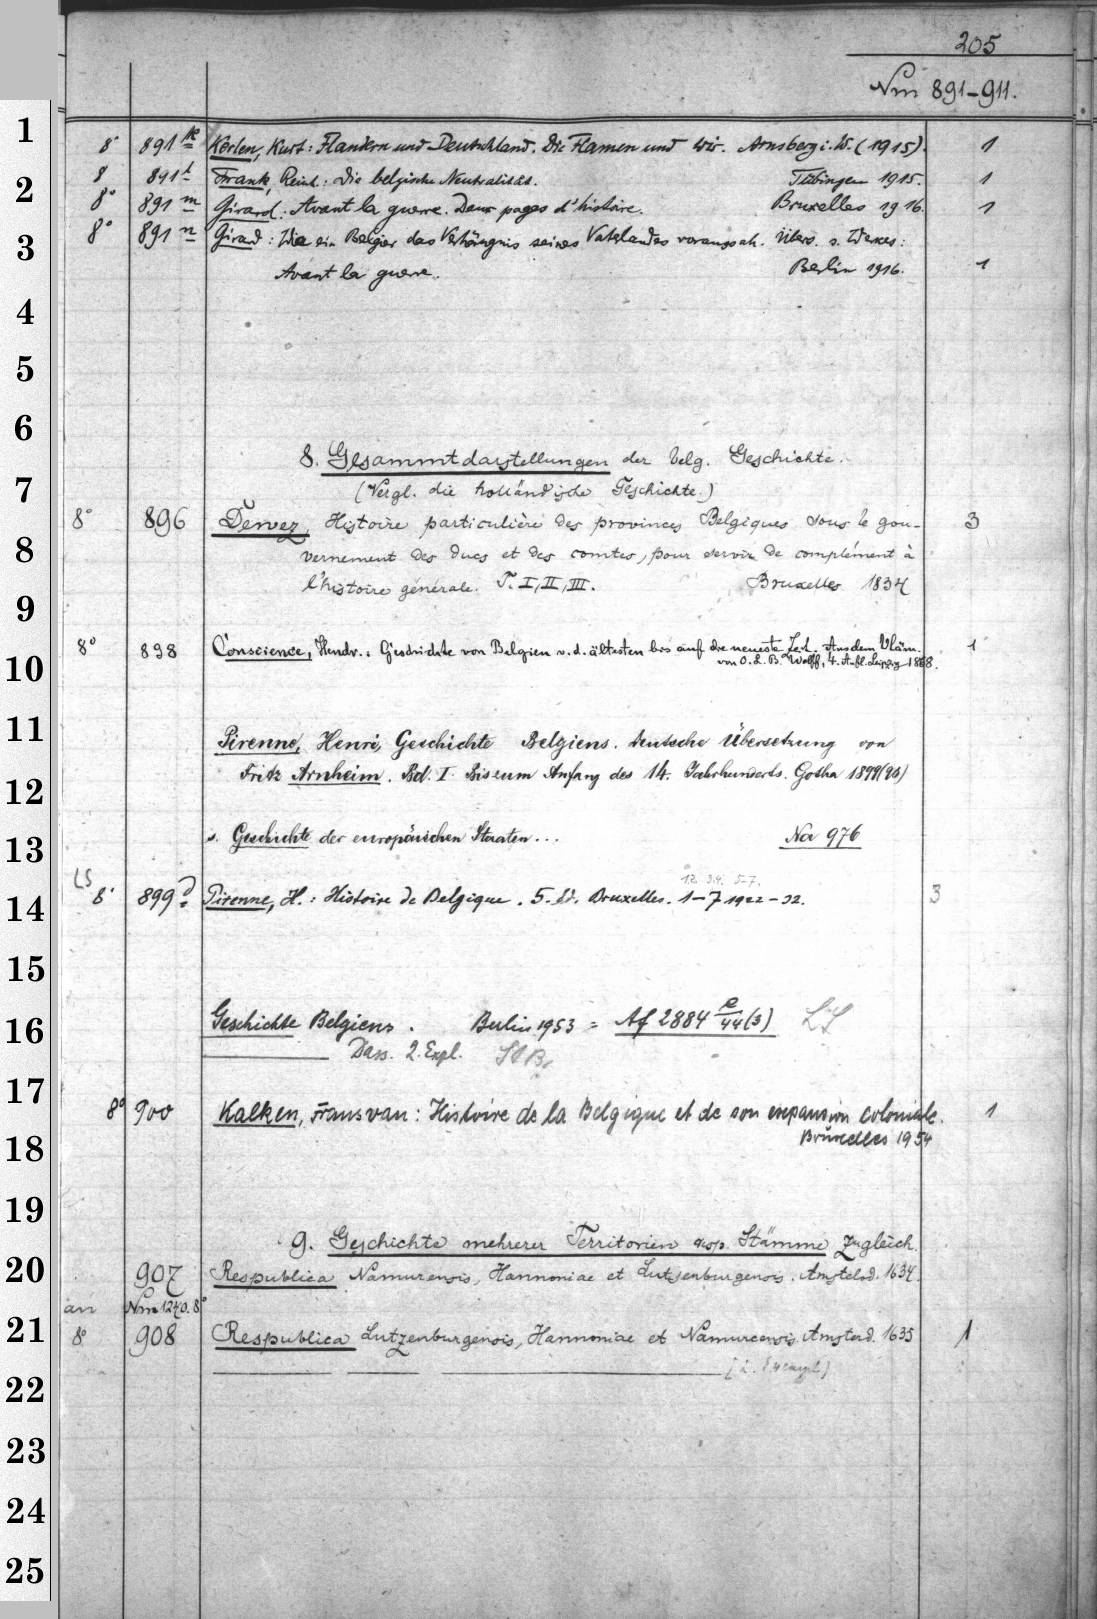 205
Nm 891-911.
1
8° 891 k Korlen, Kurt: Flandern und Deutschland. Die Flamen und wir. Arnsberg i. W. (1915). 1
2
8 891 l Frank, Reinh.: Die belgische Neutralität. Tübingen 1915. 1
8° 891 m Girard: Avant la guerre. Deux pages d'histoire. Bruxelles 1916. 1
3
8° 891 n Girard: Wie ein Belgier das Verhängnis seines Vaterlandes voraussah. Übers. s. Werkes:
Avant la guerre. Berlin 1916. 1
4
5
6
8. Gesammtdarstellungen der belg. Geschichte.
7
(Vergl. die holländische Geschichte.)
8° 896 Dewez, Histoire particulière des provinces Belgiques sous le gou- 3
8
vernement des ducs et des comtes, pour servir de complément à
l'histoire générale. T. I, II, III. Bruxelles 1834
9
8° 898 Conscience, Hendr.: Geschichte von Belgien v. d. ältesten bis auf die neueste Zeit. Aus dem Vläm. 1
10
von O. L. B. Wolff, 4. Aufl. Leipzig 1868.
11
Pirenne, Henri, Geschichte Belgiens. Deutsche Übersetzung von
Fritz Arnheim. Bd. I. Bis zum Anfang des 14. Jahrhunderts. Gotha 1899
12
s. Geschichte der europäischen Staaten... Na 976
13
LS
12. 3.4. 5-7.
8° 899 Pirenne, H.: Histoire de Belgique. 5. éd. Bruxelles. 1-7 1922-32. 3
14
15
Geschichte Belgiens. Berlin 1953 = Af 2884 e/44(3) LS
16
Dass. 2. Expl.
17
8° 900 Kalken, Frans van: Histoire de la Belgique et de son expansion coloniale. 1
18
Bruxelles 1954
19
9. Geschichte mehrerer Territorien resp. Stämme zugleich.
20
907 Respublica Namurensis, Hannoniae et Lutzenburgensis. Amstelod. 1634.
an Nm 1240. 8°
21
8° 908 Respublica Lutzenburgensis, Hannoniae et Namurcensis. Amsterd. 1635 1
(2. Exempl.)
22
23
24
25